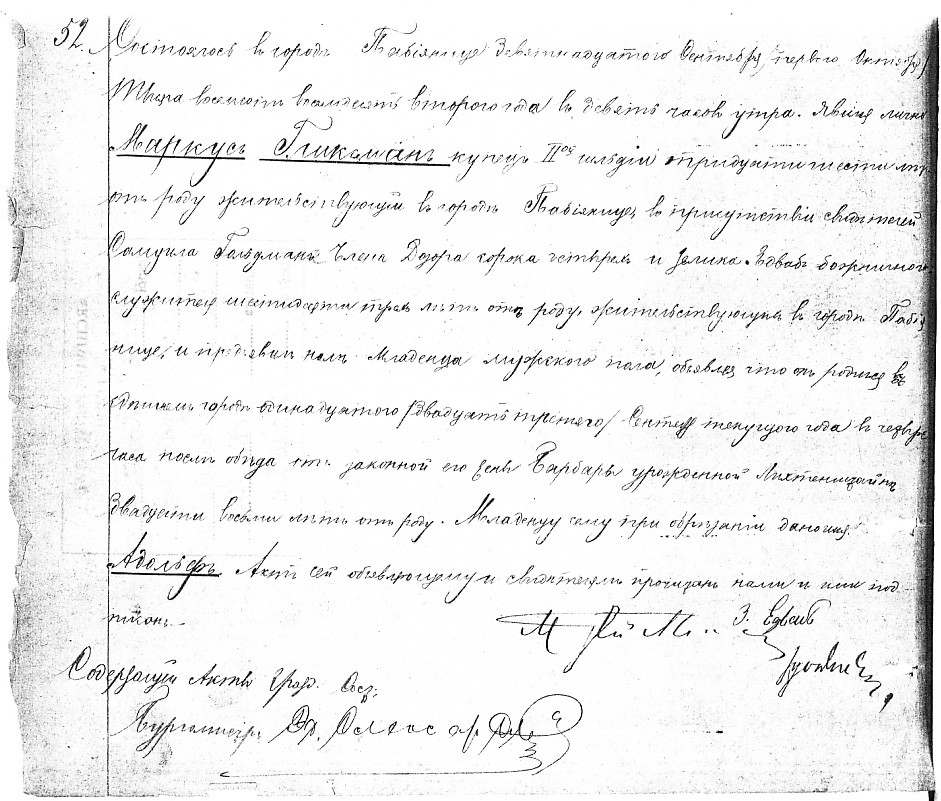 52. Состоялось въ городѣ Пабіянице девятнадцатого Сентября /первого Октября/
Тысяча восемсотъ восемдесятъ второго года въ девять часовъ утра. Явился лично
Маркусъ Гликсманъ купецъ IIой гильдіи тридцати шести лѣтъ
отъ роду жительствующій въ городѣ Пабіянице, въ присутствіи свидѣтелей
Самуила Гольдманъ Члена Дозора сорока четырехъ и Зелика Едвабъ божничного
служителя шестидесяти трехъ лѣтъ отъ роду, жительствующихъ въ городѣ Пабія
нице, и предъявилъ намъ Младенца мужескаго пола, объявляя что онъ родился въ
здѣшнемъ городѣ одинадцатого /двадцать третьего/ Сентября текущого года въ четыре
часа послѣ обѣда отъ законной его жены Барбары урожденной Лихтенштайнъ
двадцати восьми лѣтъ отъ роду. Младенцу сему при обрѣзаніи дано имя
Адольфъ. Актъ сей объявляющему и свидѣтелямъ прочитанъ нами и ими под
писанъ.
З. Едвабъ
Содержащій Акты Гражд. Сост:
Бургомистръ